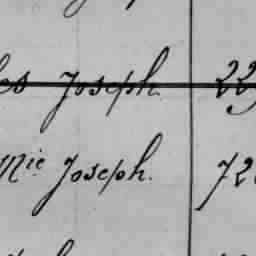 es Joseph 229
Mie Joseph. 72